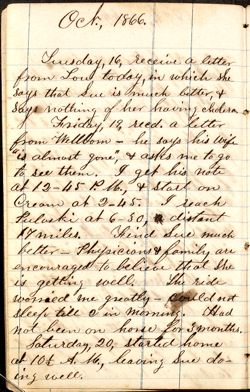 Oct, 1866.
Tuesday, 16, receive a letter
from Lou, today, in which she
says that Sue is much better, &
says nothing of her having cholera.
Friday, 19, recd. a letter
from Wellborn – he says his wife
"is almost gone", & asks me to go
to see them. I get his note
at 12-45 P.M., & start on
Cream at 2-45. I reach
Pulaski at 6-30, distant
17 miles. Find Sue much
better – Physicians & family are
encouraged to believe that she
is getting well. The ride
worried me greatly – could not
sleep till 5 in morning. Had
not been on horse for 3 months.
Saturday, 20, started home
at 10½ A.M., leaving Sue do-
ing well.